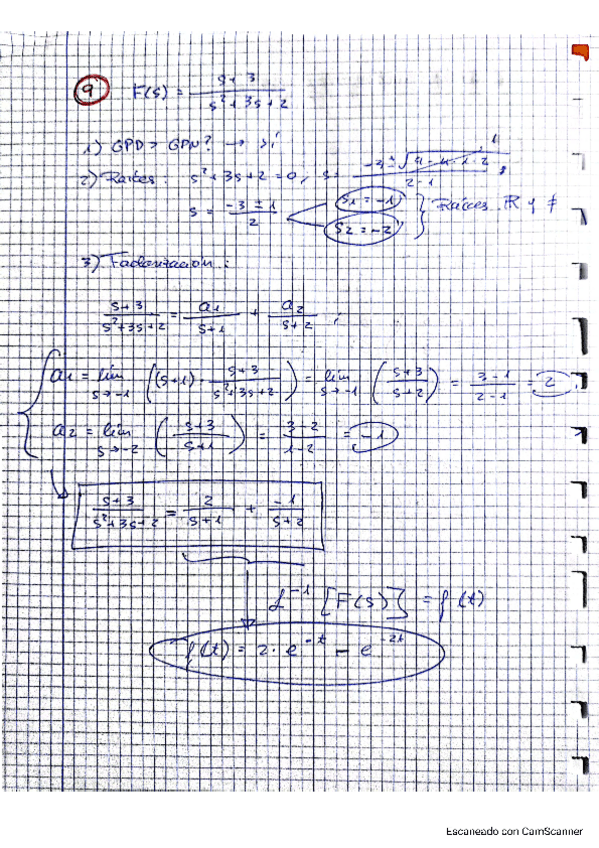 9 F(s) = (s+3)/(s²+3s+2)
1) GPD > GPN? → Sí
2) Raíces: s²+3s+2 = 0, s = (-3 ± √(9-4·1·2))/(2·1) ;
s = (-3±1)/2 s1 = -1 s2 = -2 } Raíces ℝ y ≠
3) Factorización:
(s+3)/(s²+3s+2) = a1/(s+1) + a2/(s+2) ;
a1 = lím s→-1 ((s+1) · (s+3)/(s²+3s+2)) = lím s→-1 ((s+3)/(s+2)) = (3-1)/(2-1) = 2
a2 = lím s→-2 ((s+3)/(s+1)) = (3-2)/(1-2) = -1
(s+3)/(s²+3s+2) = 2/(s+1) + -1/(s+2)
ℒ⁻¹ [F(s)] = f(t)
f(t) = 2·e^-t - e^-2t
Escaneado con CamScanner